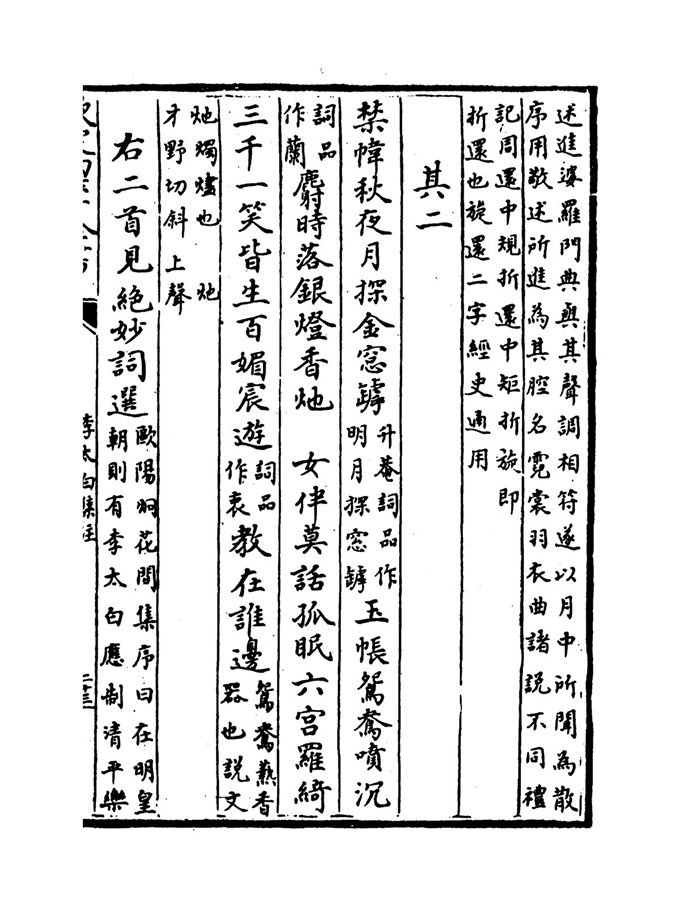 述進婆羅門典與其聲調相符遂以月中所聞為散
序用敬述所進為其腔名霓裳羽衣曲諸說不同禮
記周還中規折還中矩折旋即
折還也旋還二字經史通用
其二
禁幃秋夜月探金窓罅
升菴詞品作
明月探窓罅
玉帳鴛鴦噴沉
詞品
作蘭
麝時落銀燈香灺　女伴莫話孤眠六宫羅綺
三千一笑皆生百媚宸遊
詞品
作衷
教在誰邊
鴛鴦爇香
器也說文
灺燭燼也　灺
才野切斜上聲
右二首見絶妙詞選
歐陽炯花間集序曰在明皇
朝則有李太白應制清平樂
李太白集注